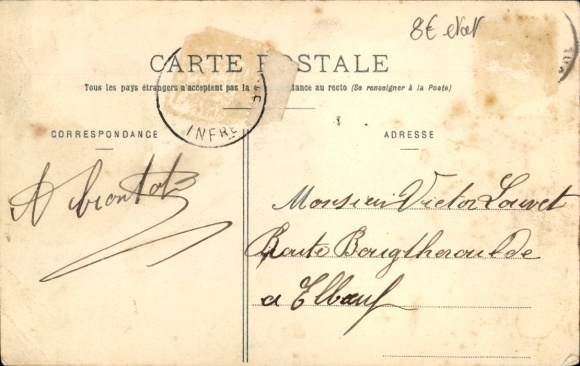 8€ etat
CARTE POSTALE
Tous les pays étrangers n'acceptent pas la c dance au recto (Se renseigner à la Poste)
CORRESPONDANCE
INFRE
ADRESSE
A bientot
Monsieur Victor Louvet
Route Bougtheroulde
a Elbeuf